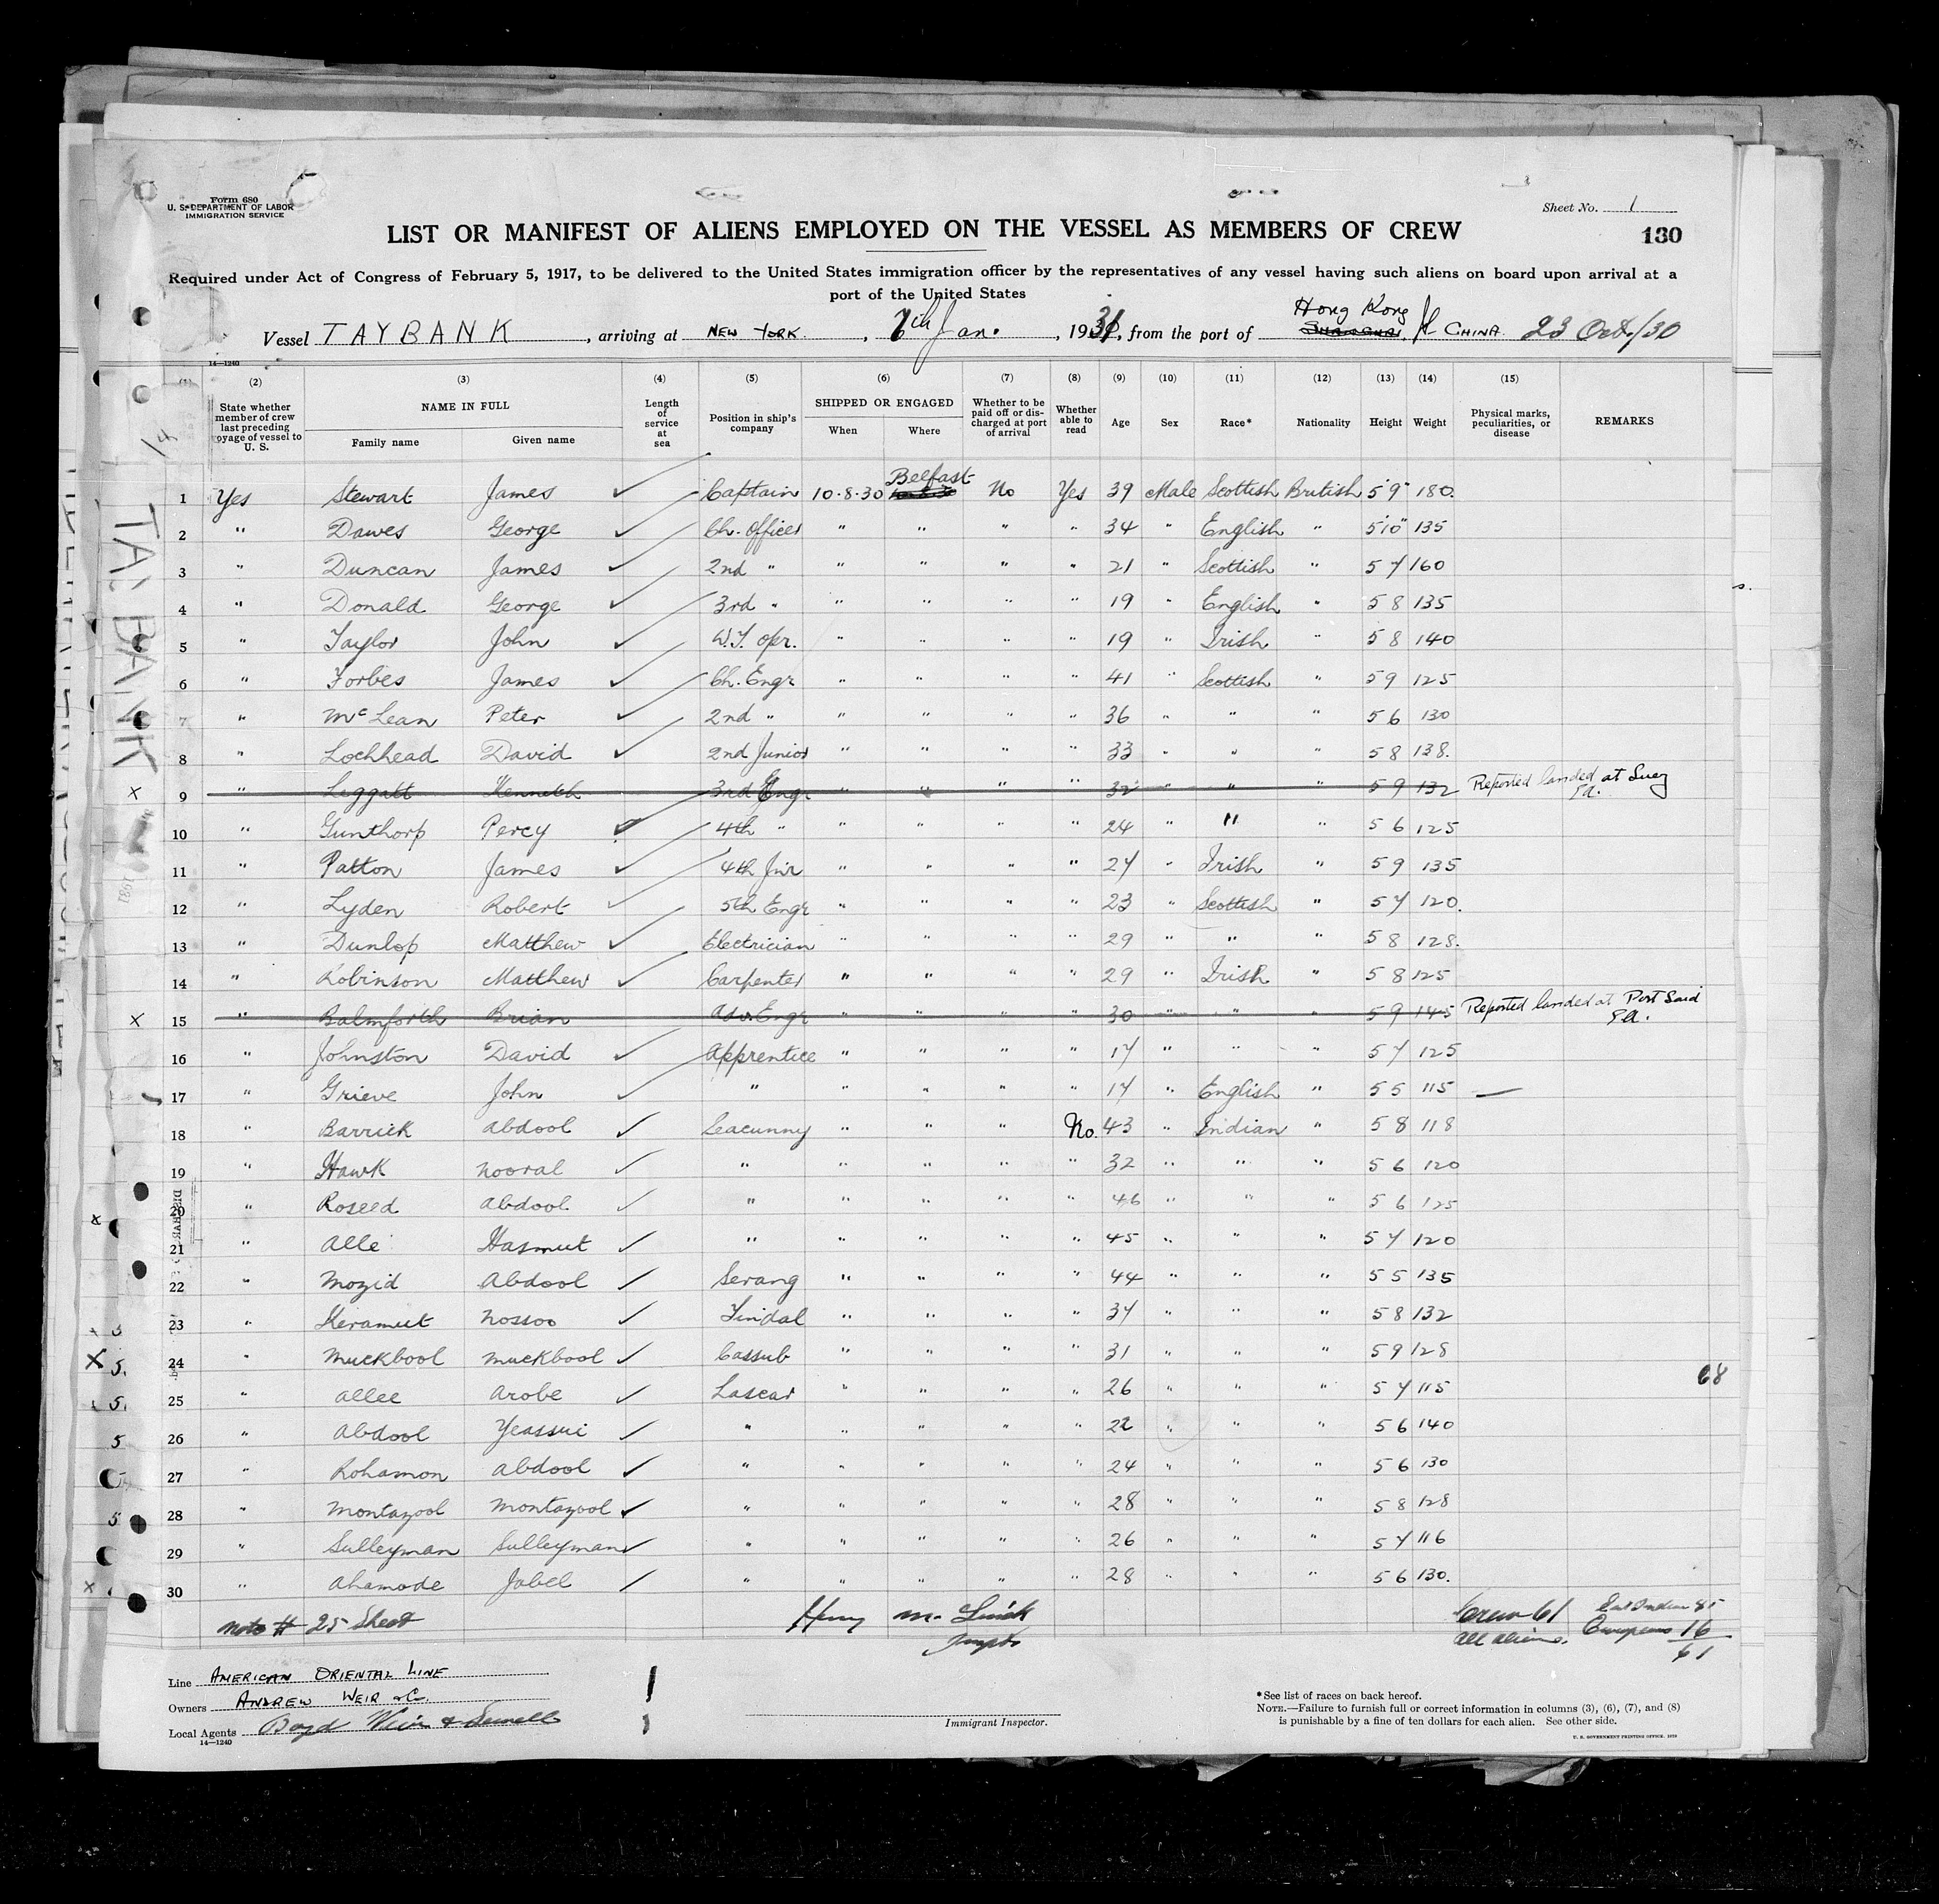 Form 680
U. S. DEPARTMENT OF LABOR
IMMIGRATION SERVICE
Sheet No. 1
LIST OR MANIFEST OF ALIENS EMPLOYED ON THE VESSEL AS MEMBERS OF CREW
130
Required under Act of Congress of February 5, 1917, to be delivered to the United States immigration officer by the representatives of any vessel having such aliens on board upon arrival at a
port of the United States
Hong Kong
Vessel TAYBANK, arriving at NEW YORK, Jan. 1931, from the port of SHANGHAI, CHINA 23 Oct./30
14—1240
(1) (2) (3) (4) (5) (6) (7) (8) (9) (10) (11) (12) (13) (14) (15)
State whether member of crew last preceding voyage of vessel to U. S. NAME IN FULL Family name Given name Length of service at sea Position in ship's company SHIPPED OR ENGAGED When Where Whether to be paid off or discharged at port of arrival Whether able to read Age Sex Race* Nationality Height Weight Physical marks, peculiarities, or disease REMARKS
TAYBANK
1 Yes Stewart James ✓ Captain 10·8·30 Belfast No Yes 39 Male Scottish British 5'9" 180.
2 " Dawes George ✓ Ch. Officer " " " " 34 " English " 5'10" 135
3 " Duncan James ✓ 2nd " " " " " 21 " Scottish " 5 7 160
4 " Donald George ✓ 3rd " " " " " 19 " English " 5 8 135
5 " Taylor John ✓ W.T. opr. " " " " 19 " Irish " 5 8 140
6 " Forbes James ✓ Ch. Engr " " " " 41 " Scottish " 5 9 125
7 " McLean Peter ✓ 2nd " " " " " 36 " " " 5 6 130
8 " Lochhead David ✓ 2nd Junior " " " " 33 " " " 5 8 138.
x 9 " Leggatt Kenneth 3rd Engr " " " " 32 " " " 5 9 132 Reported landed at Suez
10 " Gunthorp Percy ✓ 4th " " " " " 24 " " " 5 6 125
11 " Patton James ✓ 4th Jnr " " " " 27 " Irish " 5 9 135
12 " Lyden Robert ✓ 5th Engr " " " " 23 " Scottish " 5 7 120.
13 " Dunlop Matthew ✓ Electrician " " " " 29 " " " 5 8 128.
14 " Robinson Matthew ✓ Carpenter " " " " 29 " Irish " 5 8 125
x 15 " Balmforth Brian Engr " " " " 30 " " " 5 9 145 Reported landed at Port Said
16 " Johnston David ✓ Apprentice " " " " 17 " " " 5 7 125
17 " Grieve John ✓ " " " " " 17 " English " 5 5 115 —
18 " Barrick Abdool ✓ Seacunny " " " No. 43 " Indian " 5 8 118
19 " Hawk Nooral ✓ " " " " " 32 " " " 5 6 120
20 " Roseed Abdool ✓ " " " " " 46 " " " 5 6 125
21 " Alle Hasmut ✓ " " " " " 45 " " " 5 7 120
22 " Mozid Abdool ✓ Serang " " " " 44 " " " 5 5 135
23 " Keramut Nossoo ✓ Tindal " " " " 37 " " " 5 8 132
24 " Muckbool Muckbool ✓ Cassub " " " " 31 " " " 5 9 128
68
25 " Allee Arobe ✓ Lascar " " " " 26 " " " 5 7 115
26 " Abdool Yeassui ✓ " " " " " 22 " " " 5 6 140
27 " Rohamon Abdool ✓ " " " " " 24 " " " 5 6 130
28 " Montazool Montazool ✓ " " " " " 28 " " " 5 8 128
29 " Sulleyman Sulleyman ✓ " " " " " 26 " " " 5 7 116
30 " Ahamode Jobel ✓ " " " " " 28 " " " 5 6 130.
Note # 25 Sheet Henry M. Crew 61 East Indian 45
All aliens. Europeans 16
61
Line AMERICAN ORIENTAL LINE
Owners ANDREW WEIR & Co.
Local Agents Boyd Weir & Sewell
14—1240
Immigrant Inspector.
*See list of races on back hereof.
NOTE.—Failure to furnish full or correct information in columns (3), (6), (7), and (8)
is punishable by a fine of ten dollars for each alien. See other side.